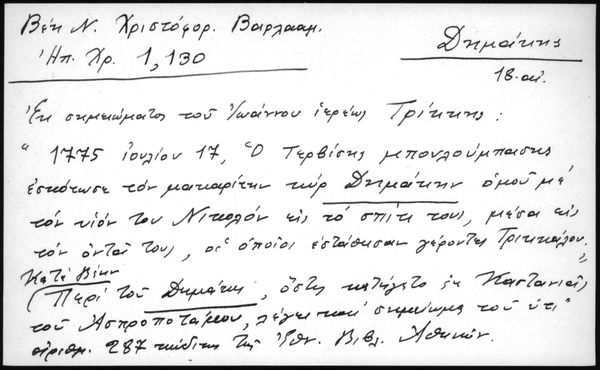 Βέη Ν. Χριστόφορ. Βαρλααμ.
Ἠπ. Χρ. 1, 130
Δημάκης
18. αἰ.
Ἐκ σημειώματος τοῦ Ἰωάννου ἱερέως Τρίκκης :
" 1775 ἰουλίου 17, Ὁ Τερβίσης μπουλούμπασης
ἐσκότωσε τόν μακαρίτην κύρ Δημάκην ὁμοῦ μέ
τόν υἱόν του Νικολόν εἰς τό σπίτι τους, μέσα εἰς
τόν ὀντᾶ τους, οἱ ὁποῖοι ἐστάθησαν γέροντες Τρικκάλου. "
Κατά Βέην
(Περί τοῦ Δημάκη, ὅστις κατήγετο ἐκ Καστανιᾶς
τοῦ Ἀσπροποτάμου, λέγει καί σημείωμα τοῦ ὑπ'
ἀριθμ. 287 κώδικος τῆς Ἐθν. Βιβλ. Ἀθηνῶν.